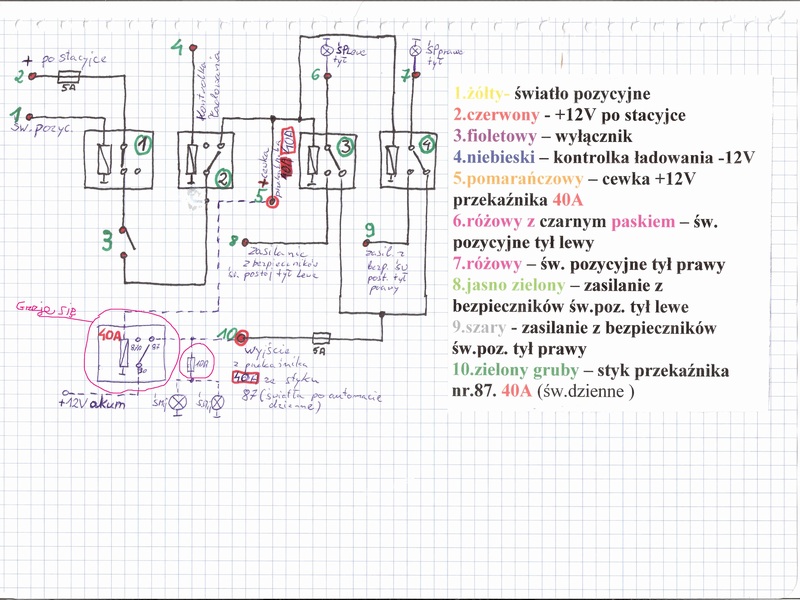 + po stacyjce
2
5A
1
św. pozyc.
4
Kontrolka
ładowania
śP. Lewe
tył
6
śP. prawe
tył
7
1
2
3
4
+ cewka
przekaźnika
40A
5
3
8
Zasilanie
z bezpieczników
św. postoj tył Lewe
9
zasil. z
bezp. św
post. tył
prawy
Grzeje się
40A
87
30
10A
+12V akum
10
5A
wyjście
z przekaźnika
40A ze styku
87 (światła po automacie
dzienne)
1.żółty- światło pozycyjne
2.czerwony - +12V po stacyjce
3.fioletowy – wyłącznik
4.niebieski – kontrolka ładowania -12V
5.pomarańczowy – cewka +12V
przekaźnika 40A
6.różowy z czarnym paskiem – św.
pozycyjne tył lewy
7.różowy – św. pozycyjne tył prawy
8.jasno zielony – zasilanie z
bezpieczników św.poz. tył lewe
9.szary - zasilanie z bezpieczników
św.poz. tył prawy
10.zielony gruby – styk przekaźnika
nr.87. 40A (św.dzienne )